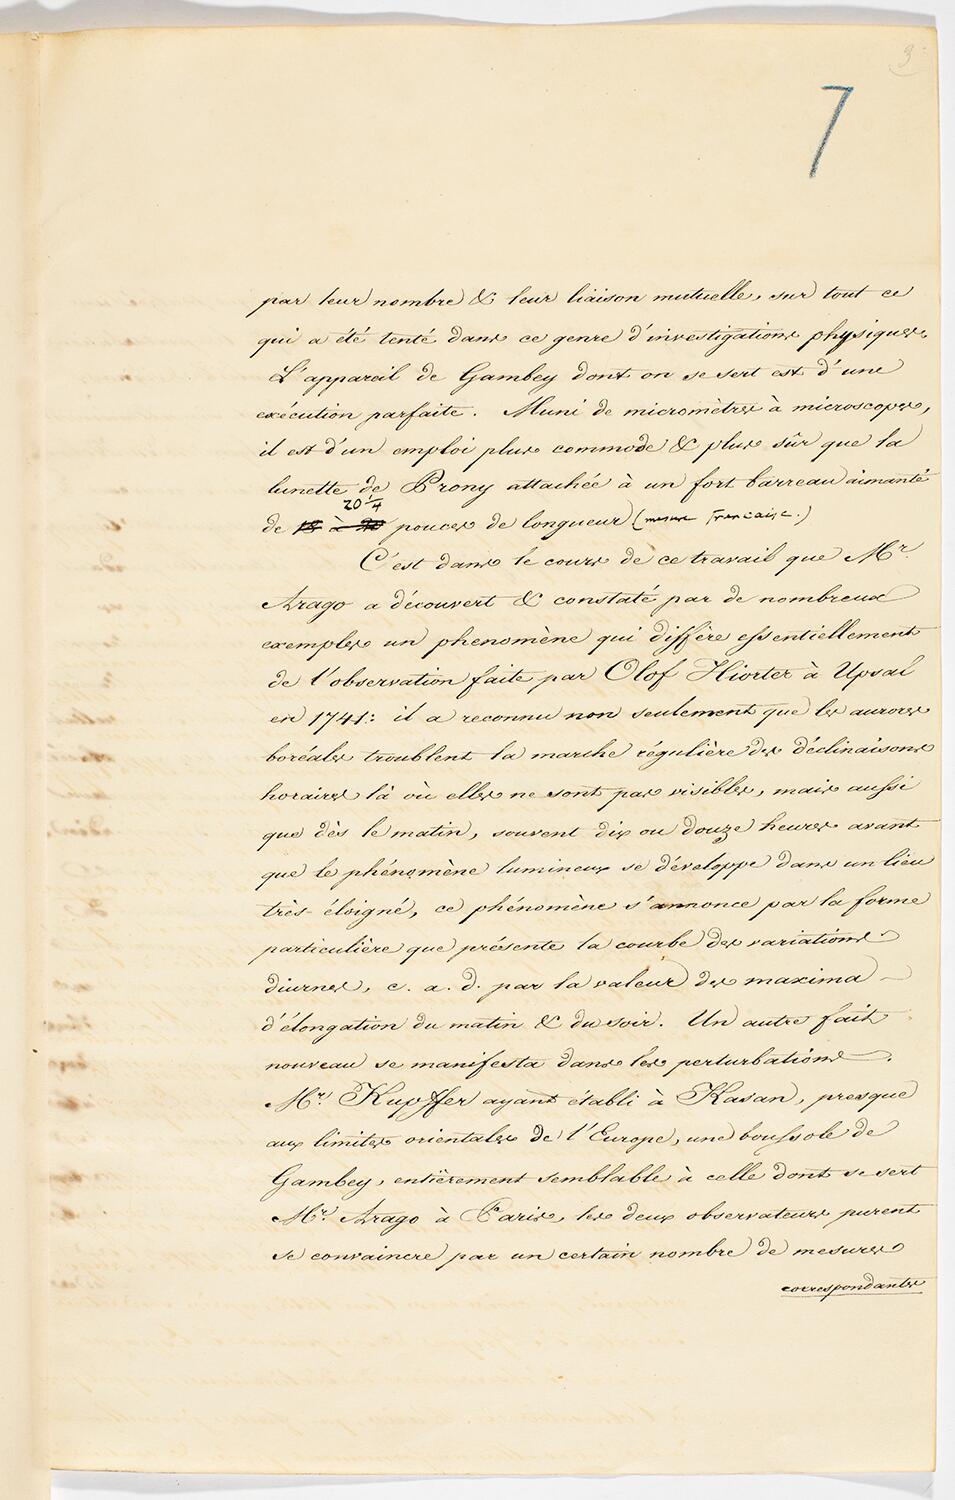 3
7
par leur nombre & leur liaison mutuelle, sur tout ce
qui a été tenté dans ce genre d'investigations physiques.
L'appareil de Gambey dont on se sert est d'une
exécution parfaite. Muni de micromètres à microscopes,
il est d'un emploi plus commode & plus sûr que la
lunette de Prony attachée à un fort barreau aimanté
20 1/4
de 18 à 20 pouces de longueur (mesure Française.)
C'est dans le cours de ce travail que Mr.
Arago a découvert & constaté par de nombreux
exemples un phenomène qui diffère essentiellement
de l'observation faite par Olof Hiorter à Upsal
en 1741: il a reconnu non seulement que les aurores
boréales troublent la marche régulière des déclinaisons
horaires là où elles ne sont pas visibles, mais aussi
que dès le matin, souvent dix ou douze heures avant
que le phénomène lumineux se développe dans un lieu
très-éloigné, ce phénomène s'annonce par la forme
particulière que présente la courbe des variations
diurnes, c. a. d. par la valeur des maxima
d'élongation du matin & du soir. Un autre fait
nouveau se manifesta dans les perturbations.
Mr. Kupffer ayant établi à Kasan, presque
aux limites orientales de l'Europe, une boussole de
Gambey, entièrement semblable à celle dont se sert
Mr. Arago à Paris, les deux observateurs purent
se convaincre par un certain nombre de mesures
correspondantes